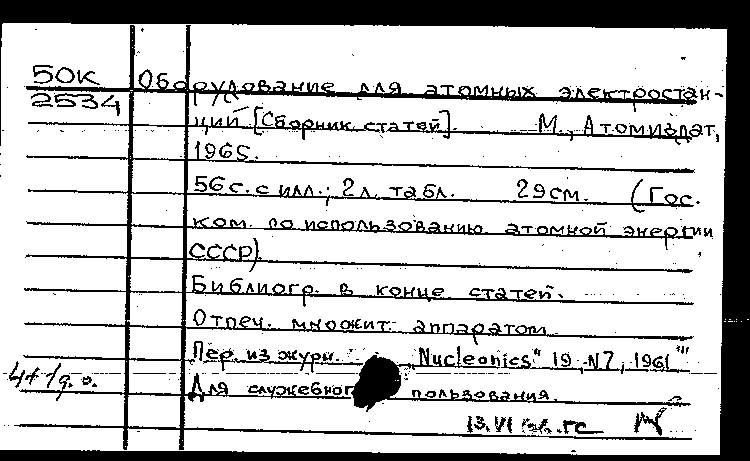 50К
2534
Оборудование для атомных электростан-
ций [Сборник статей]. М., Атомиздат,
1965.
56 с. с илл.; 2 л. табл. 29 см. (Гос.
ком. по использованию атомной энергии
СССР).
Библиогр. в конце статей.
Отпеч. множит. аппаратом
Пер. из журн. "Nucleonics" 19, N7, 1961
4+1д.о.
Для служебног пользования.
13.VI гс